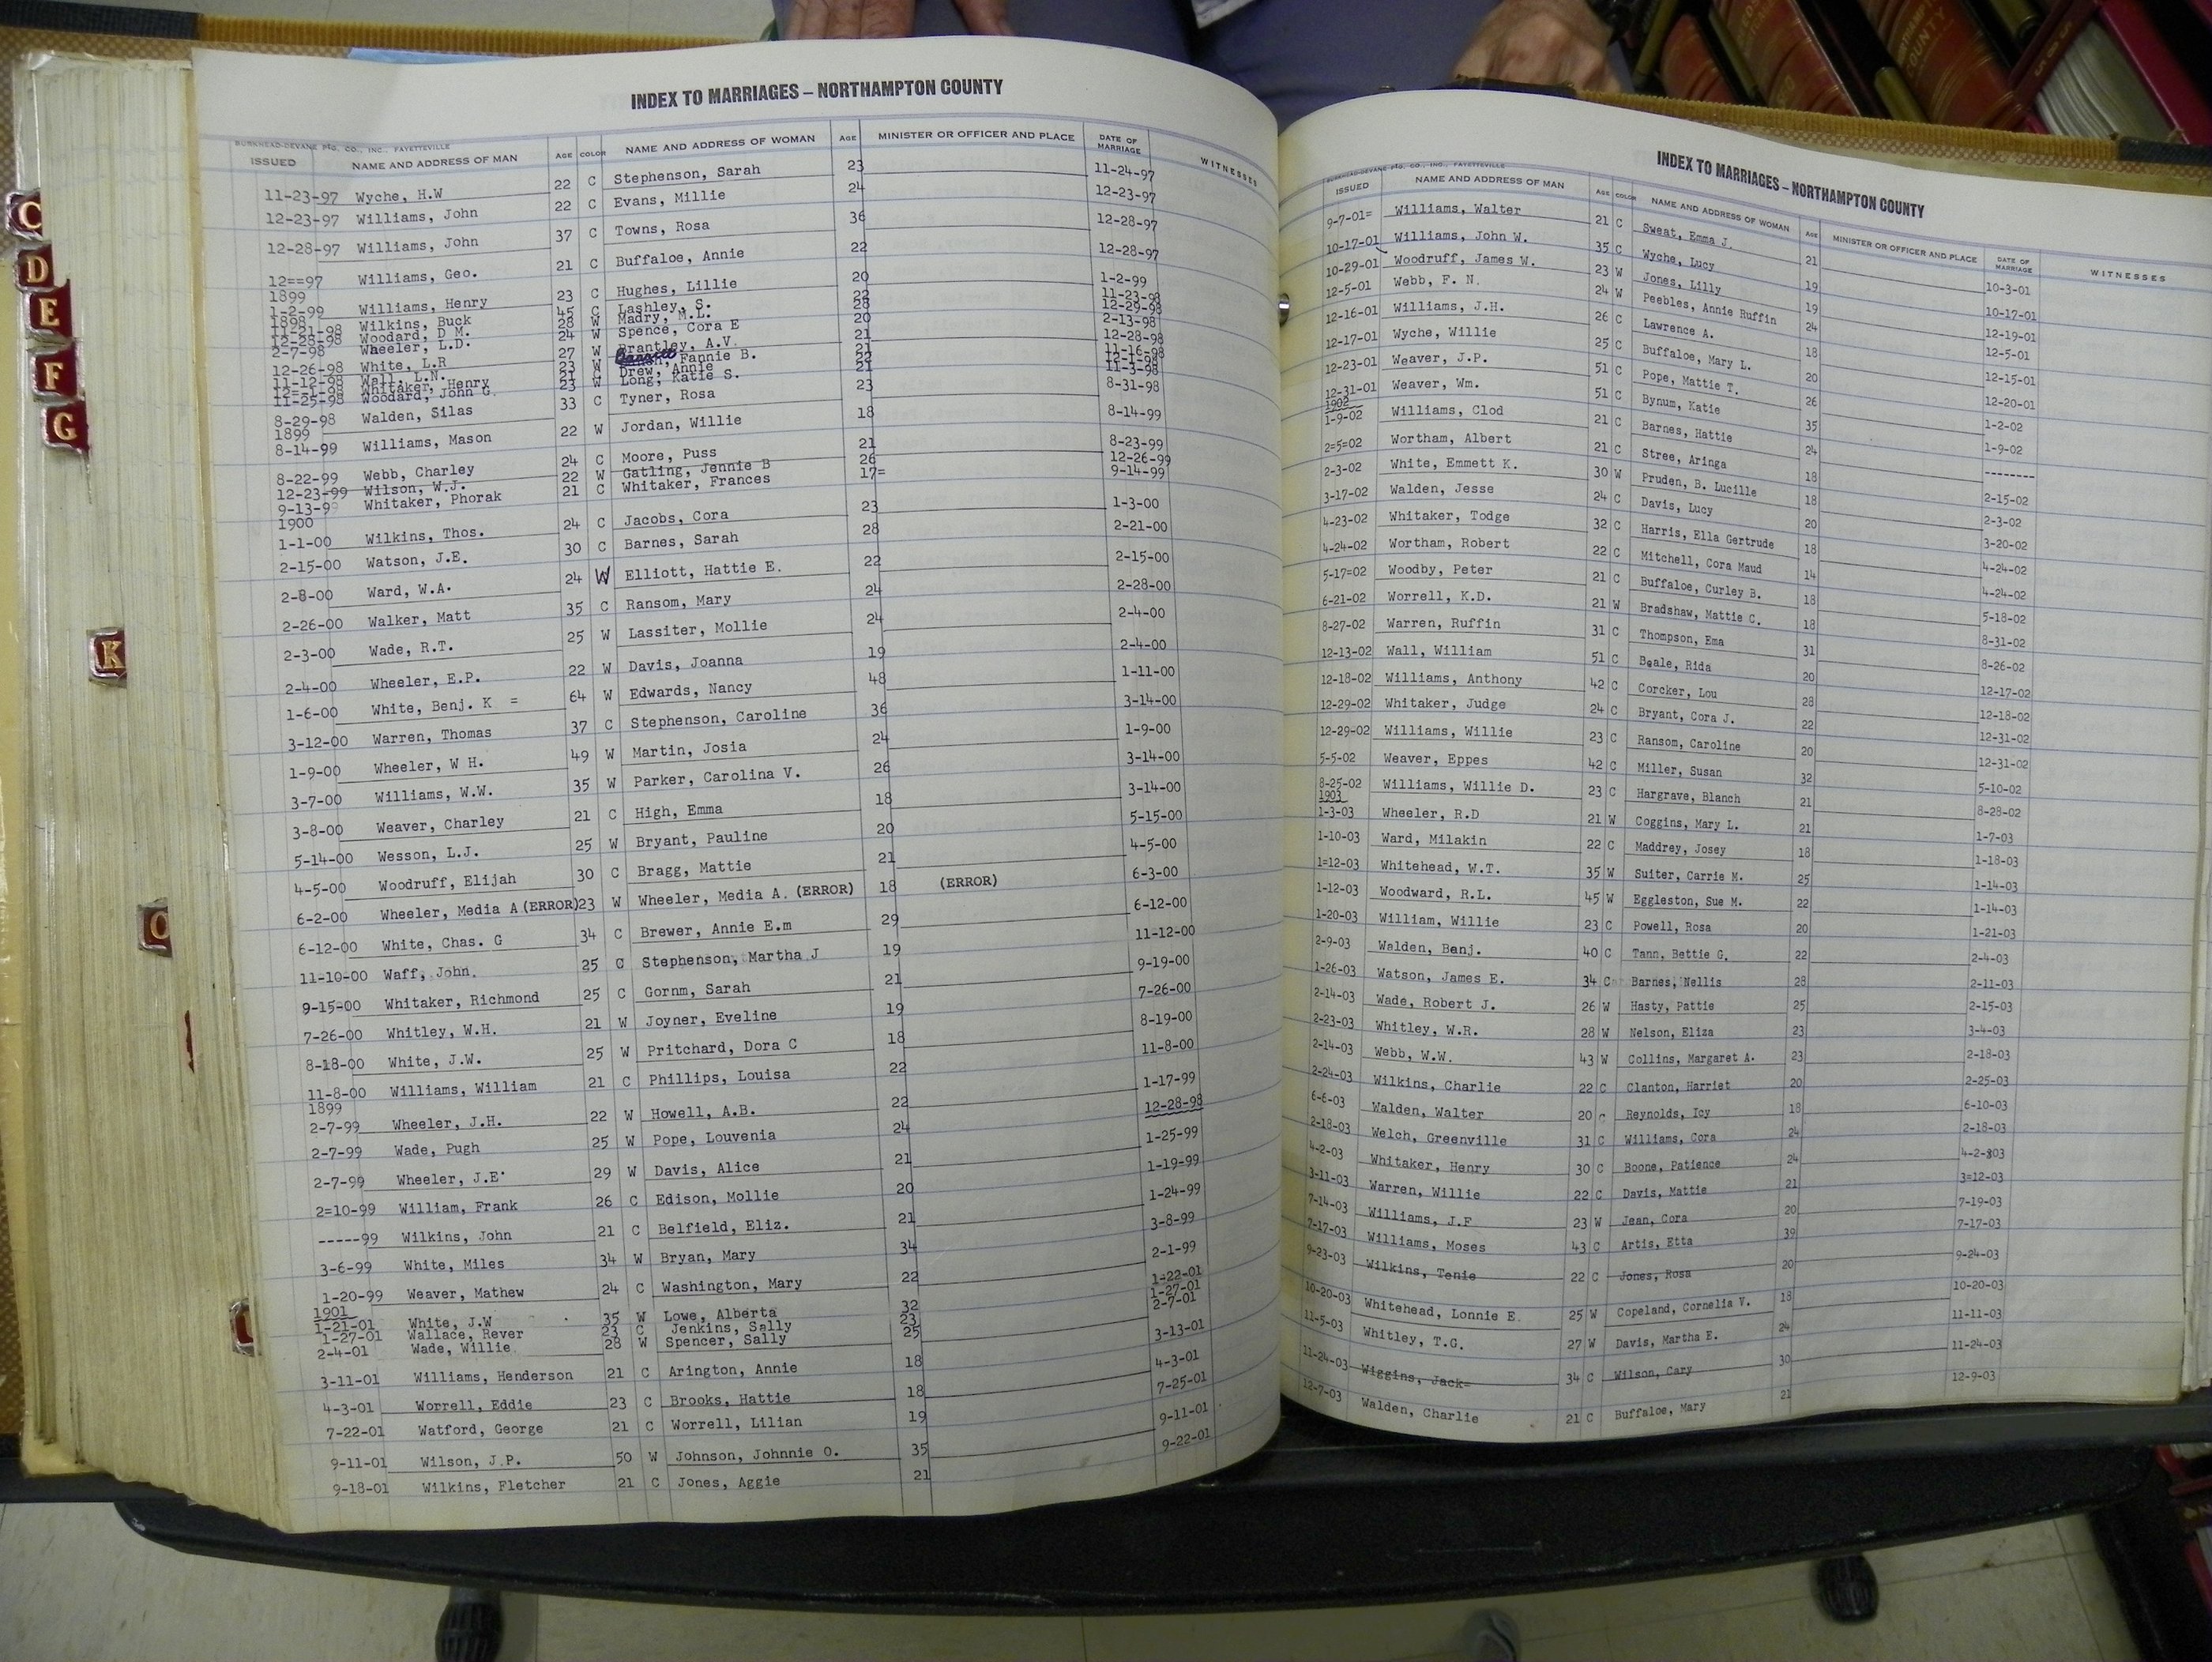 INDEX TO MARRIAGES – NORTHAMPTON COUNTY
BURKHEAD-DEVANE PTG. CO., INC., FAYETTEVILLE
ISSUED NAME AND ADDRESS OF MAN AGE COLOR NAME AND ADDRESS OF WOMAN AGE MINISTER OR OFFICER AND PLACE DATE OF MARRIAGE WITNESSES
11-23-97 Wyche, H.W 22 C Stephenson, Sarah 23 11-24-97
12-23-97 Williams, John 22 C Evans, Millie 24 12-23-97
12-28-97 Williams, John 37 C Towns, Rosa 36 12-28-97
12==97 Williams, Geo. 21 C Buffaloe, Annie 22 12-28-97
1899
1-2-99 Williams, Henry 23 C Hughes, Lillie 20 1-2-99
1898
11-21-98 Wilkins, Buck 45 C Lashley, S. 22 11-23-98
12-28-98 Woodard, D M. 28 W Madry, M.L. 28 12-29-98
2-7-98 Wheeler, L.D. 24 W Spence, Cora E 20 2-13-98
12-26-98 White, L.R 27 W Brantley, A.V. 21 12-28-98
11-12-98 Wall, L.N. 23 W Fannie B. 21 11-16-98
Whitaker, Henry 21 C Drew, Annie 22 12-1-98
11-25-98 Woodard, John G. 23 W Long, Katie S. 21 11-3-98
8-29-98 Walden, Silas 33 C Tyner, Rosa 23 8-31-98
1899
8-14-99 Williams, Mason 22 W Jordan, Willie 18 8-14-99
8-22-99 Webb, Charley 24 C Moore, Puss 21 8-23-99
12-23-99 Wilson, W.J. 22 W Gatling, Jennie B 26 12-26-99
9-13-99 Whitaker, Phorak 21 C Whitaker, Frances 17= 9-14-99
1900
1-1-00 Wilkins, Thos. 24 C Jacobs, Cora 23 1-3-00
2-15-00 Watson, J.E. 30 C Barnes, Sarah 28 2-21-00
2-8-00 Ward, W.A. 24 W Elliott, Hattie E. 22 2-15-00
2-26-00 Walker, Matt 35 C Ransom, Mary 24 2-28-00
2-3-00 Wade, R.T. 25 W Lassiter, Mollie 24 2-4-00
2-4-00 Wheeler, E.P. 22 W Davis, Joanna 19 2-4-00
1-6-00 White, Benj. K = 64 W Edwards, Nancy 48 1-11-00
3-12-00 Warren, Thomas 37 C Stephenson, Caroline 36 3-14-00
1-9-00 Wheeler, W H. 49 W Martin, Josia 24 1-9-00
3-7-00 Williams, W.W. 35 W Parker, Carolina V. 26 3-14-00
3-8-00 Weaver, Charley 21 C High, Emma 18 3-14-00
5-14-00 Wesson, L.J. 25 W Bryant, Pauline 20 5-15-00
4-5-00 Woodruff, Elijah 30 C Bragg, Mattie 21 4-5-00
6-2-00 Wheeler, Media A (ERROR) 23 W Wheeler, Media A. (ERROR) 18 (ERROR) 6-3-00
6-12-00 White, Chas. G 34 C Brewer, Annie E.m 29 6-12-00
11-10-00 Waff, John. 25 C Stephenson, Martha J 19 11-12-00
9-15-00 Whitaker, Richmond 25 C Gornm, Sarah 21 9-19-00
7-26-00 Whitley, W.H. 21 W Joyner, Eveline 19 7-26-00
8-18-00 White, J.W. 25 W Pritchard, Dora C 18 8-19-00
11-8-00 Williams, William 21 C Phillips, Louisa 22 11-8-00
1899
2-7-99 Wheeler, J.H. 22 W Howell, A.B. 22 1-17-99
2-7-99 Wade, Pugh 25 W Pope, Louvenia 24 12-28-98
2-7-99 Wheeler, J.E. 29 W Davis, Alice 21 1-25-99
2=10-99 William, Frank 26 C Edison, Mollie 20 1-19-99
-----99 Wilkins, John 21 C Belfield, Eliz. 21 1-24-99
3-6-99 White, Miles 34 W Bryan, Mary 34 3-8-99
1-20-99 Weaver, Mathew 24 C Washington, Mary 22 2-1-99
1901
1-21-01 White, J.W 35 W Lowe, Alberta 32 1-22-01
1-27-01 Wallace, Rever 23 C Jenkins, Sally 23 1-27-01
2-4-01 Wade, Willie 28 W Spencer, Sally 25 2-7-01
3-11-01 Williams, Henderson 21 C Arington, Annie 18 3-13-01
4-3-01 Worrell, Eddie 23 C Brooks, Hattie 18 4-3-01
7-22-01 Watford, George 21 C Worrell, Lilian 19 7-25-01
9-11-01 Wilson, J.P. 50 W Johnson, Johnnie O. 35 9-11-01
9-18-01 Wilkins, Fletcher 21 C Jones, Aggie 21 9-22-01
INDEX TO MARRIAGES – NORTHAMPTON COUNTY
BURKHEAD-DEVANE PTG. CO., INC., FAYETTEVILLE
ISSUED NAME AND ADDRESS OF MAN AGE COLOR NAME AND ADDRESS OF WOMAN AGE MINISTER OR OFFICER AND PLACE DATE OF MARRIAGE WITNESSES
9-7-01= Williams, Walter 21 C Sweat, Emma J. 21 10-3-01
10-17-01 Williams, John W. 35 C Wyche, Lucy 19 10-17-01
10-29-01 Woodruff, James W. 23 W Jones, Lilly 19 12-19-01
12-5-01 Webb, F. N. 24 W Peebles, Annie Ruffin 24 12-5-01
12-16-01 Williams, J.H. 26 C Lawrence A. 18 12-15-01
12-17-01 Wyche, Willie 25 C Buffaloe, Mary L. 20 12-20-01
12-23-01 Weaver, J.P. 51 C Pope, Mattie T. 26 1-2-02
12-31-01 Weaver, Wm. 51 C Bynum, Katie 35 1-9-02
1902
1-9-02 Williams, Clod 21 C Barnes, Hattie 24 -------
2=5=02 Wortham, Albert 21 C Stree, Aringa 18 2-15-02
2-3-02 White, Emmett K. 30 W Pruden, B. Lucille 18 2-3-02
3-17-02 Walden, Jesse 24 C Davis, Lucy 20 3-20-02
4-23-02 Whitaker, Todge 32 C Harris, Ella Gertrude 18 4-24-02
4-24-02 Wortham, Robert 22 C Mitchell, Cora Maud 14 4-24-02
5-17=02 Woodby, Peter 21 C Buffaloe, Curley B. 18 5-18-02
6-21-02 Worrell, K.D. 21 W Bradshaw, Mattie C. 18 8-31-02
8-27-02 Warren, Ruffin 31 C Thompson, Ema 31 8-26-02
12-13-02 Wall, William 51 C Beale, Rida 20 12-17-02
12-18-02 Williams, Anthony 42 C Corcker, Lou 28 12-18-02
12-29-02 Whitaker, Judge 24 C Bryant, Cora J. 22 12-31-02
12-29-02 Williams, Willie 23 C Ransom, Caroline 20 12-31-02
5-5-02 Weaver, Eppes 42 C Miller, Susan 32 5-10-02
8-25-02 Williams, Willie D. 23 C Hargrave, Blanch 21 8-28-02
1903
1-3-03 Wheeler, R.D 21 W Coggins, Mary L. 21 1-7-03
1-10-03 Ward, Milakin 22 C Maddrey, Josey 18 1-18-03
1=12-03 Whitehead, W.T. 35 W Suiter, Carrie M. 25 1-14-03
1-12-03 Woodward, R.L. 45 W Eggleston, Sue M. 22 1-14-03
1-20-03 William, Willie 23 C Powell, Rosa 20 1-21-03
2-9-03 Walden, Benj. 40 C Tann, Bettie G. 22 2-4-03
1-26-03 Watson, James E. 34 C Barnes, Nellis 28 2-11-03
2-14-03 Wade, Robert J. 26 W Hasty, Pattie 25 2-15-03
2-23-03 Whitley, W.R. 28 W Nelson, Eliza 23 3-4-03
2-14-03 Webb, W.W. 43 W Collins, Margaret A. 23 2-18-03
2-24-03 Wilkins, Charlie 22 C Clanton, Harriet 20 2-25-03
6-6-03 Walden, Walter 20 C Reynolds, Icy 18 6-10-03
2-18-03 Welch, Greenville 31 C Williams, Cora 24 2-18-03
4-2-03 Whitaker, Henry 30 C Boone, Patience 24 4-2-803
3-11-03 Warren, Willie 22 C Davis, Mattie 21 3=12-03
7-14-03 Williams, J.F 23 W Jean, Cora 20 7-19-03
7-17-03 Williams, Moses 43 C Artis, Etta 39 7-17-03
9-23-03 Wilkins, Tenie 22 C Jones, Rosa 20 9-24-03
10-20-03 Whitehead, Lonnie E. 25 W Copeland, Cornelia V. 18 10-20-03
11-5-03 Whitley, T.G. 27 W Davis, Martha E. 24 11-11-03
11-24-03 Wiggins, Jack= 34 C Wilson, Cary 30 11-24-03
12-7-03 Walden, Charlie 21 C Buffaloe, Mary 21 12-9-03
C
D
E
F
G
K
NORTHAMPTON
COUNTY